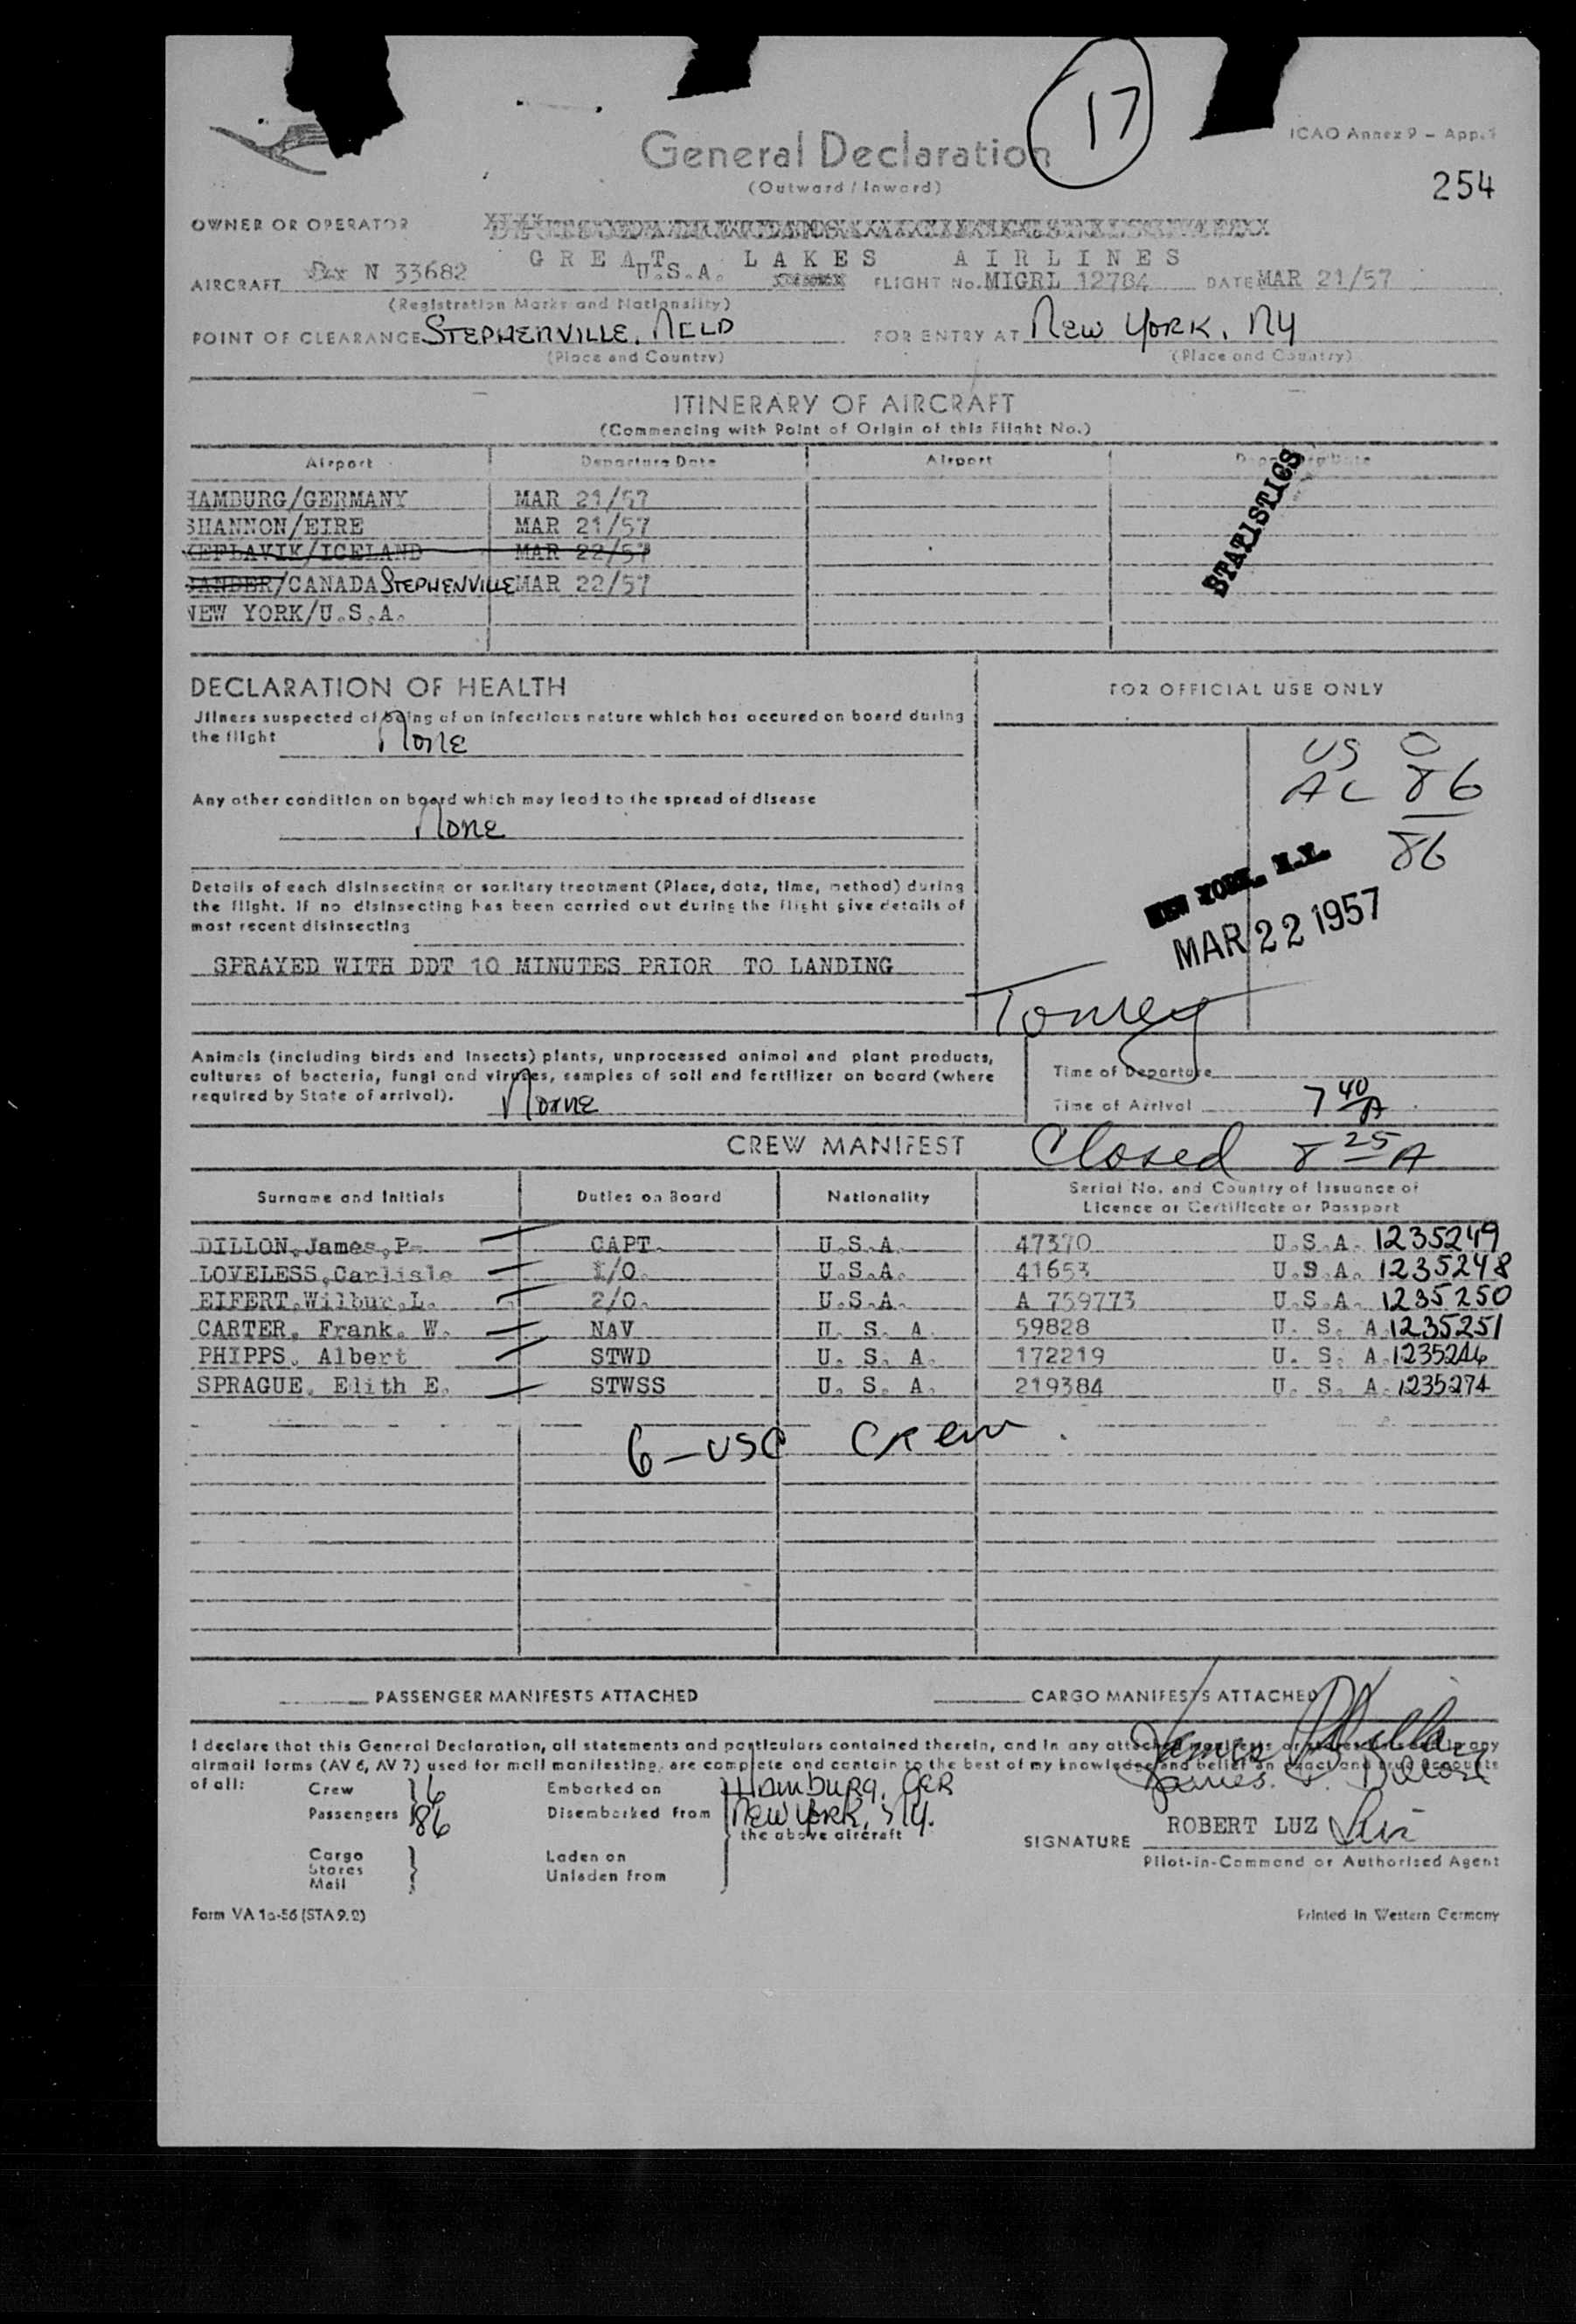 17
General Declaration
ICAO Annex 9 – App. 1
(Outward / Inward)
254
OWNER OR OPERATOR
GREAT LAKES AIRLINES
AIRCRAFT N 33682 U.S.A. FLIGHT No. MIGRL 12784 DATE MAR 21/57
(Registration Marks and Nationality)
POINT OF CLEARANCE STEPHENVILLE, NFLD FOR ENTRY AT NEW YORK, NY
(Place and Country) (Place and Country)
ITINERARY OF AIRCRAFT
(Commencing with Point of Origin of this Flight No.)
Airport Departure Date Airport Departure Date
HAMBURG/GERMANY MAR 21/57
SHANNON/EIRE MAR 21/57
KEFLAVIK/ICELAND MAR 22/57
GANDER/CANADA STEPHENVILLE MAR 22/57
NEW YORK/U.S.A.
STATISTICS
DECLARATION OF HEALTH
FOR OFFICIAL USE ONLY
Illness suspected of being of an infectious nature which has occured on board during
the flight None
US 0
AL 86
86
Any other condition on board which may lead to the spread of disease
None
NEW YORK, N.Y.
MAR 22 1957
Details of each disinsecting or sanitary treatment (Place, date, time, method) during
the flight. If no disinsecting has been carried out during the flight give details of
most recent disinsecting
SPRAYED WITH DDT 10 MINUTES PRIOR TO LANDING
Animals (including birds and insects) plants, unprocessed animal and plant products,
cultures of bacteria, fungi and viruses, samples of soil and fertilizer on board (where
required by State of arrival). None
Time of Departure
Time of Arrival 7 40 A
CREW MANIFEST Closed 8 25 A
Surname and Initials Duties on Board Nationality Serial No. and Country of Issuance of
Licence or Certificate or Passport
DILLON,James,P. CAPT. U.S.A. 47370 U.S.A. 1235249
LOVELESS,Carlisle 1/O. U.S.A. 41653 U.S.A. 1235248
EIFERT,Wilbur,L. 2/O. U.S.A. A 759773 U.S.A. 1235250
CARTER, Frank. W. NAV U. S. A. 59828 U. S. A. 1235251
PHIPPS, Albert STWD U. S. A. 172219 U. S. A. 1235246
SPRAGUE, Elith E. STWSS U. S. A. 219384 U. S. A. 1235274
6 – USC Crew
PASSENGER MANIFESTS ATTACHED CARGO MANIFESTS ATTACHED
I declare that this General Declaration, all statements and particulars contained therein, and in any attached manifests or any
airmail forms (AV 6, AV 7) used for mail manifesting, are complete and contain to the best of my knowledge and belief an exact and true accounts
of all:
James P. Dillon
Crew 6 Embarked on HAMBURG, GER
Passengers 86 Disembarked from NEW YORK, NY.
the above aircraft
ROBERT LUZ Luz
SIGNATURE
Pilot-in-Command or Authorised Agent
Cargo Laden on
Stores
Mail Unladen from
Form VA 1a-56 (STA 9.2)
Printed in Western Germany